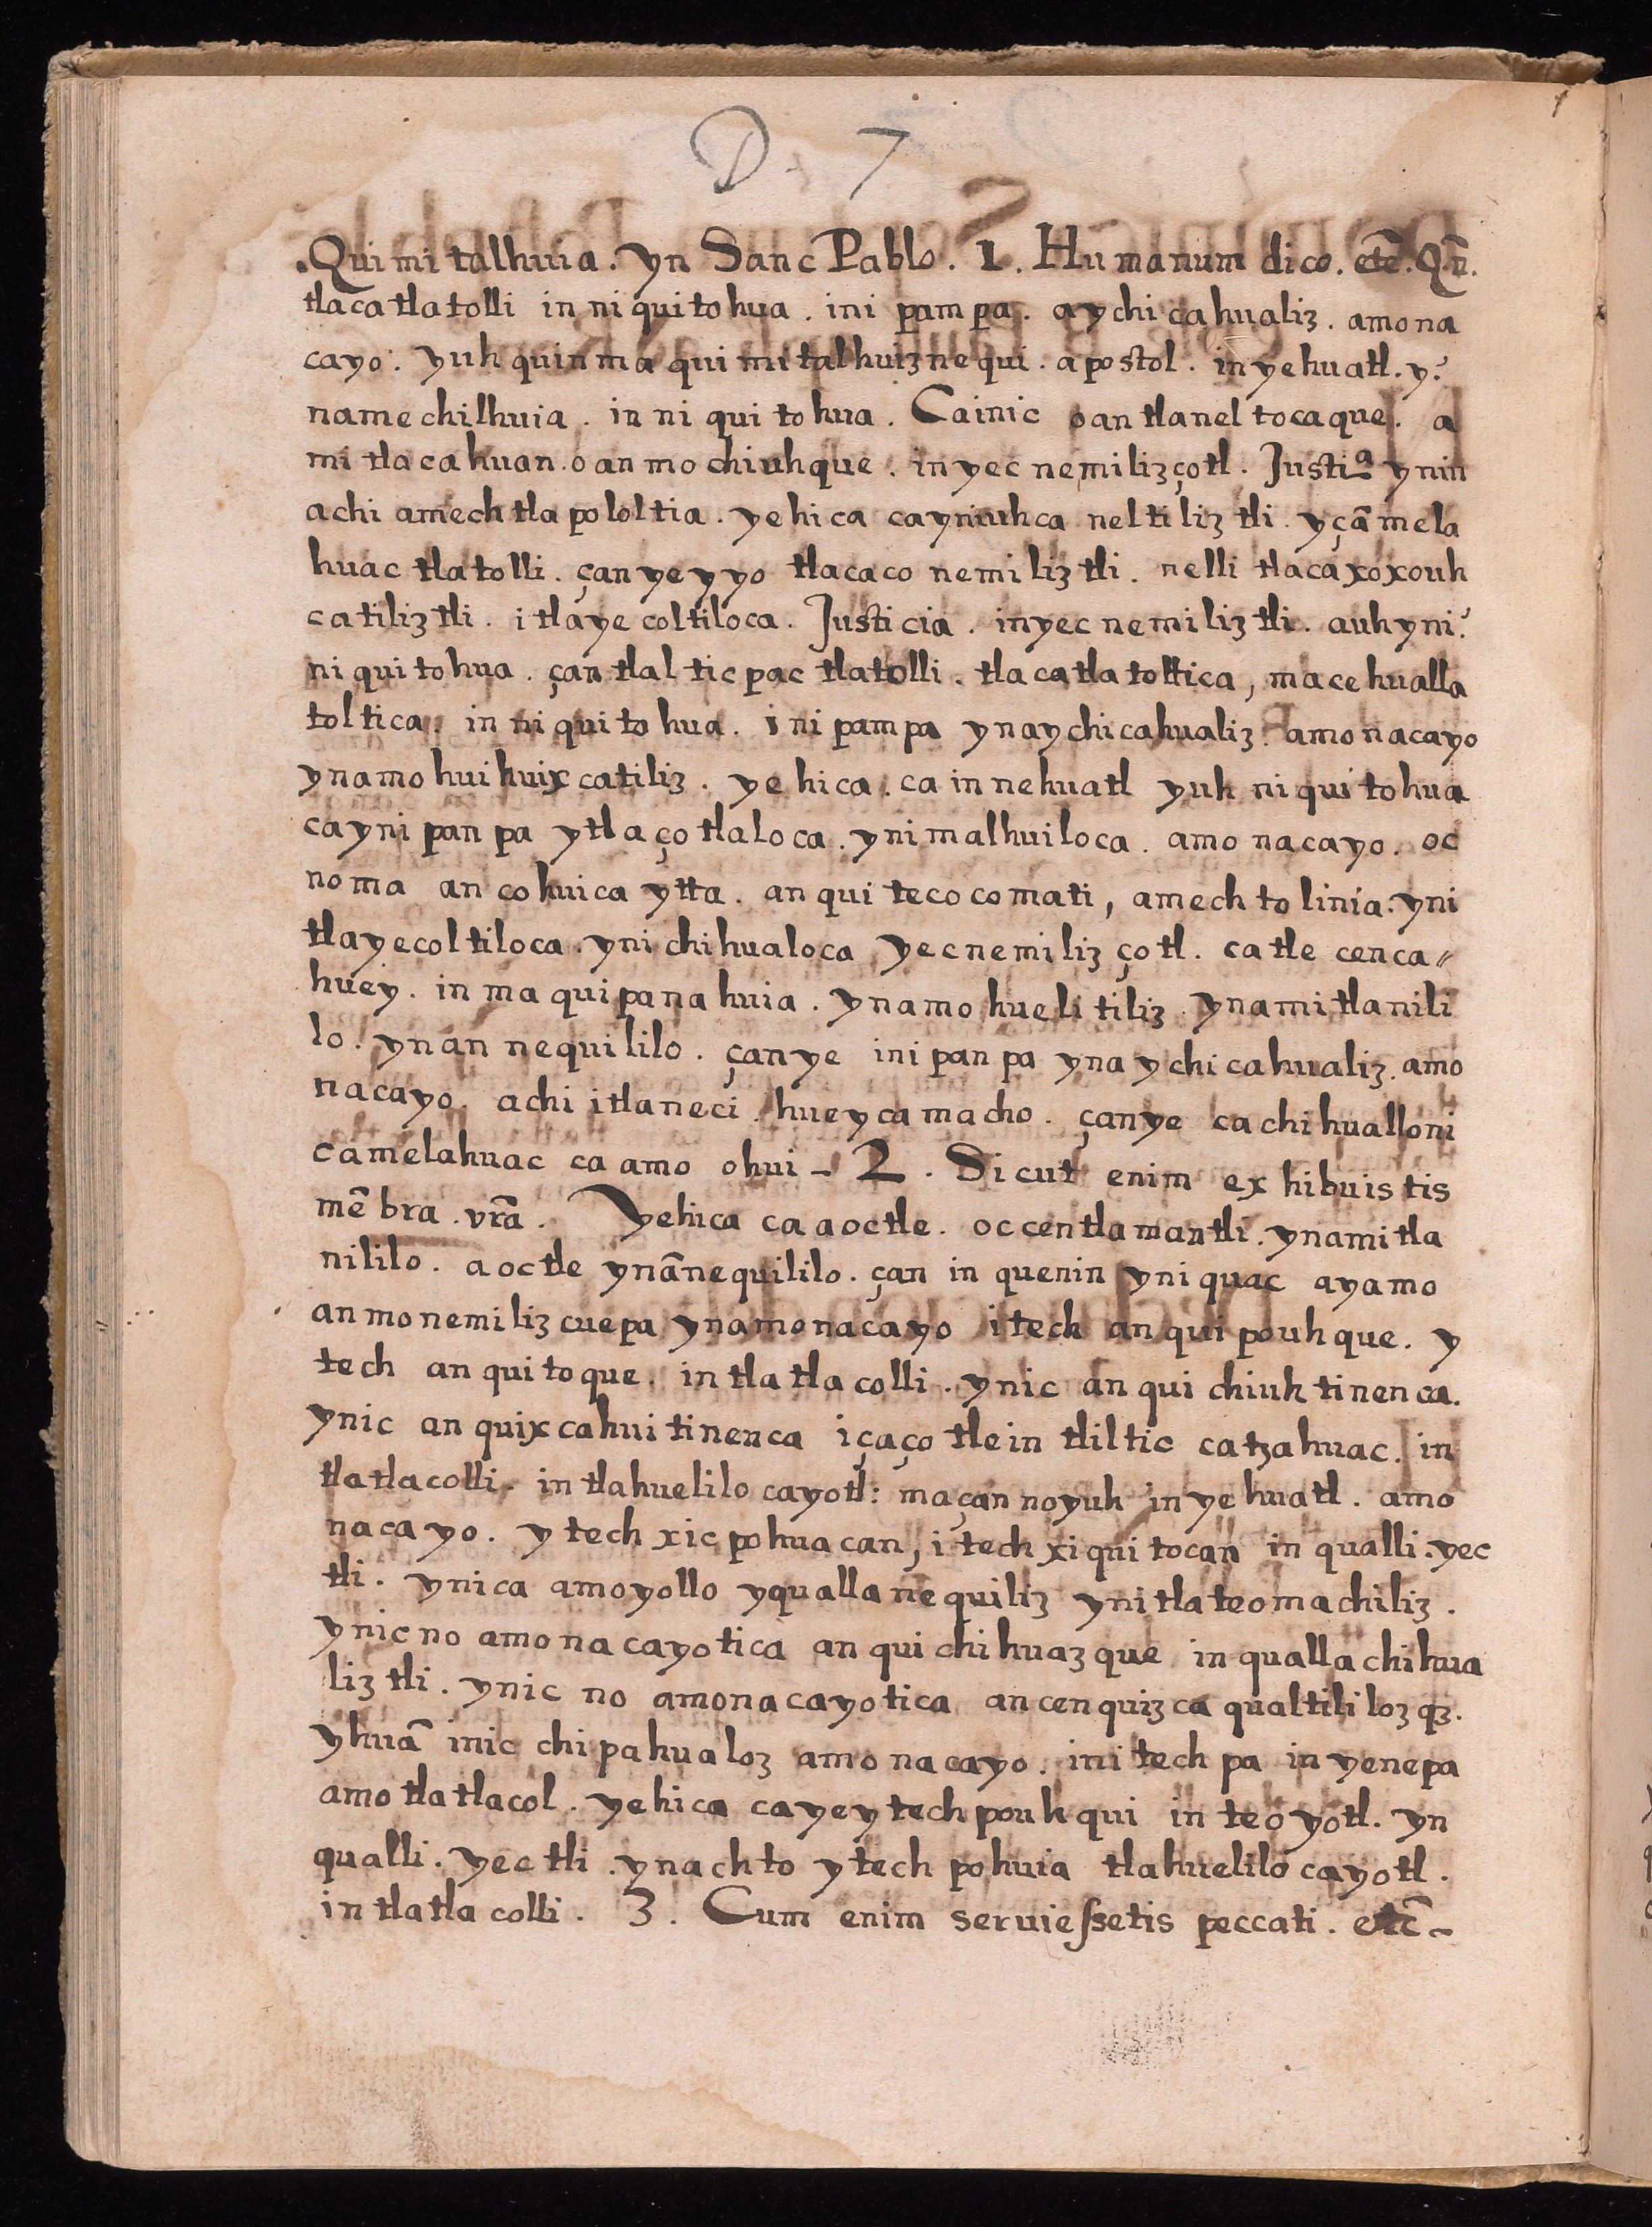 D. 7
.Quimitalhuia. yn Sanc Pablo. 1. Humanum dico. etc̃. Qñ.
tlacatlatolli in niquitohua. inipampa. aychicahualiz. amona
cayo. yuhquinma quimitalhuiznequi. apostol. inyehuatl. y̾
namechilhuia. in niquitohua. Cainic oantlaneltocaque. a
mitlacahuan. oanmochiuhque. inyecnemilizçotl. Justiª ynin
achi amechtlapololtia. yehica cayniuhca neltiliztli. yçãmela
huac tlatolli. çanyeyyo tlacaconemiliztli. nelli tlacaxoxouh
catiliztli. itlayecoltiloca. Justicia. inyecnemiliztli. auhyni̾
niquitohua. çan tlalticpac tlatolli. tlacatlatoltica, macehualla
toltica. in niquitohua. inipampa ynaychicahualiz. amonacayo
ynamohuihuixcatiliz. yehica. ca in nehuatl yuh niquitohua
caynipanpa ytlaçotlaloca. ynimalhuiloca. amonacayo. oc
noma ancohuicaytta. anquitecocomati, amechtolinia. yni
tlayecoltiloca. ynichihualoca yecnemilizçotl. catle cenca〃
huey. inmaquipanahuia. ynamohuelitiliz. ynamitlanili
lo. ynannequililo. çanye inipanpa ynaychicahualiz. amo
nacayo. achi itlaneci. hueycamacho. çanye cachihualloni
camelahuac ca amo ohui - 2. Sicut enim exhibuistis
mẽbra. vrã. Yehica caaoctle. occentlamantli. ynamitla
nililo. aoctle ynãnequililo. çan in quenin yniquac ayamo
anmonemilizcuepa ynamonacayo itech anquipouhque. y
tech anquitoque. intlatlacolli. ynic anquichiuhtinenca.
ynic anquixcahuitinenca içaço tlein tliltic catzahuac. in
tlatlacolli. intlahuelilocayotl: maçannoyuh inyehuatl. amo
nacayo. ytech xicpohuacan, itech xiquitocan in qualli. yec
tli. ynica amoyollo yquallanequiliz ynitlateomachiliz.
ynicno amonacayotica anquichihuazque inquallachihua
liztli. ynic no amonacayotica ancenquizca qualtililozqz.
yhuã inic chipahualoz amonacayo. initechpa inyenepa
amotlatlacol. yehica cayeytechpouhqui in teoyotl. yn
qualli. yectli. ynachto ytech pohuia tlahuelilocayotl.
intlatlacolli. 3. Cum enim seruieſsetis peccati. etc̃-